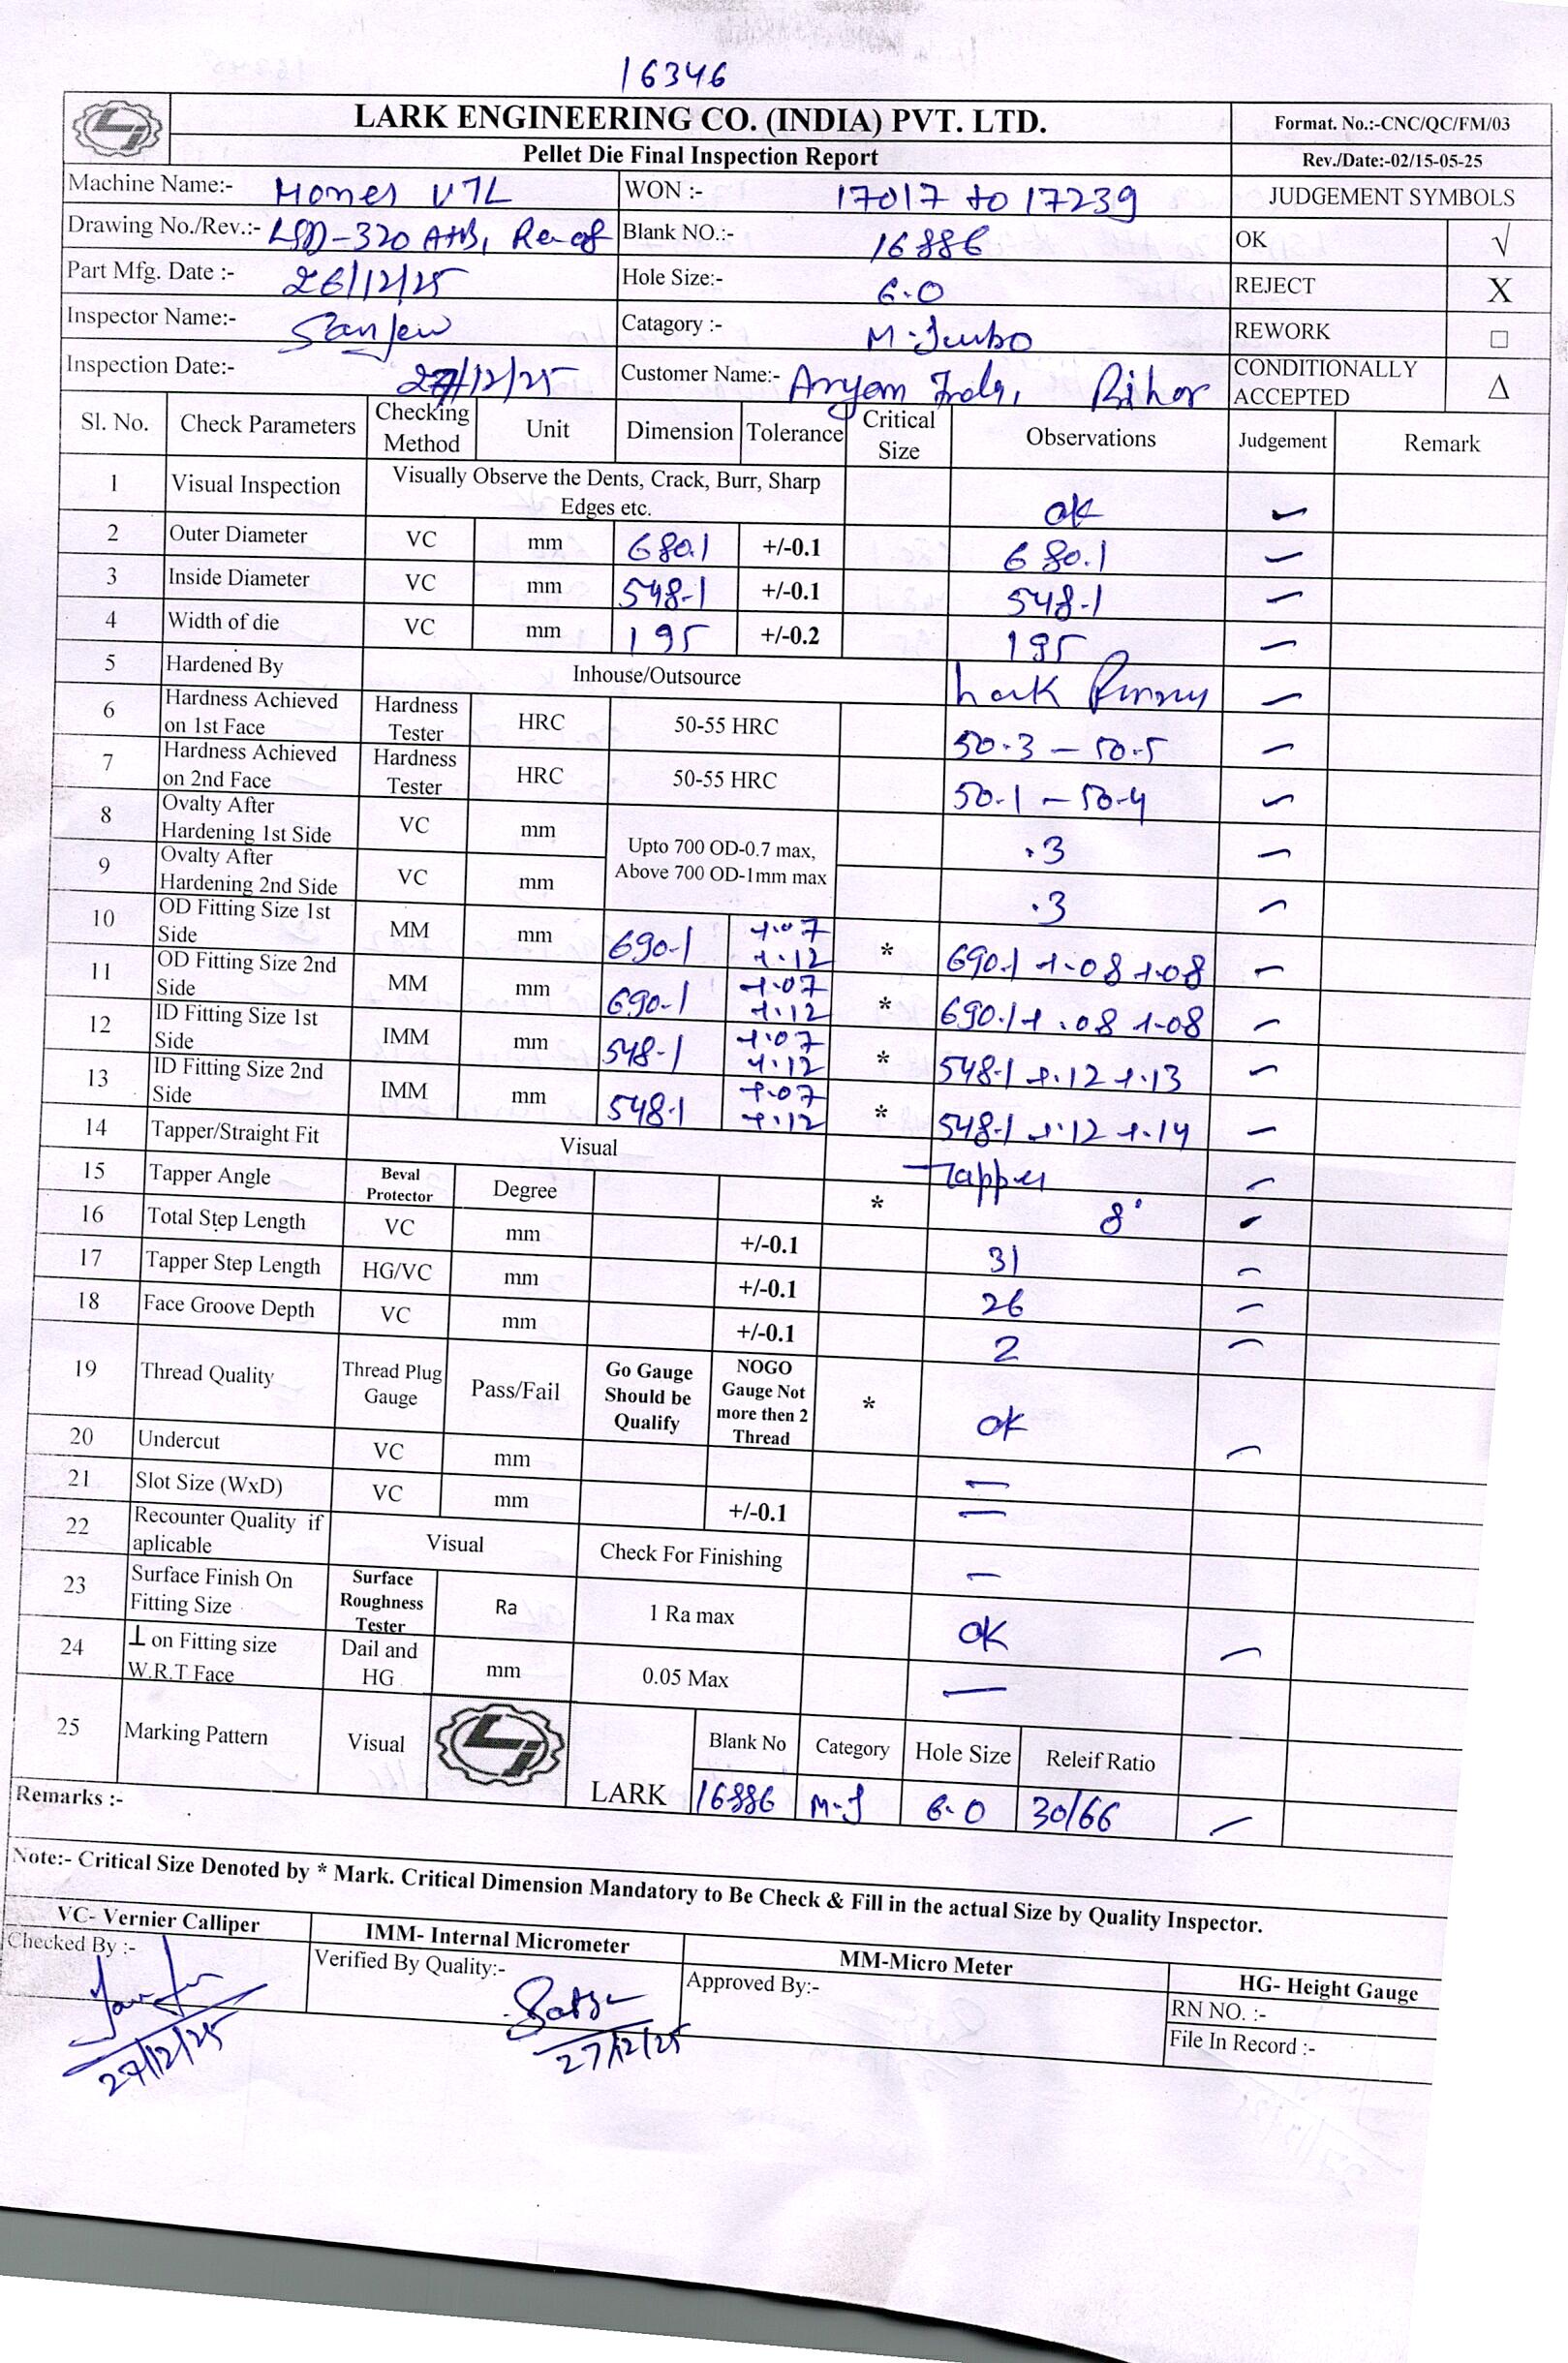 16346
LARK ENGINEERING CO. (INDIA) PVT. LTD.
Format. No.:-CNC/QC/FM/03
Pellet Die Final Inspection Report
Rev./Date:-02/15-05-25
Machine Name:- VTL WON :- 17017 to 17239 JUDGEMENT SYMBOLS
Drawing No./Rev.:- LSD-320 Blank NO.:- 16886 OK √
Part Mfg. Date :- 26/12/25 Hole Size:- 6.0 REJECT X
Inspector Name:- Catagory :- M-Jumbo REWORK □
Inspection Date:- 27/12/25 Customer Name:- CONDITIONALLY ACCEPTED Δ
Sl. No. Check Parameters Checking Method Unit Dimension Tolerance Critical Size Observations Judgement Remark
1 Visual Inspection Visually Observe the Dents, Crack, Burr, Sharp Edges etc. ok
2 Outer Diameter VC mm 680.1 +/-0.1 680.1
3 Inside Diameter VC mm 548-1 +/-0.1 548-1
4 Width of die VC mm 195 +/-0.2 195
5 Hardened By Inhouse/Outsource Lark
6 Hardness Achieved on 1st Face Hardness Tester HRC 50-55 HRC 50.3 - 50.5
7 Hardness Achieved on 2nd Face Hardness Tester HRC 50-55 HRC 50.1 - 50.4
8 Ovalty After Hardening 1st Side VC mm Upto 700 OD-0.7 max, Above 700 OD-1mm max .3
9 Ovalty After Hardening 2nd Side VC mm .3
10 OD Fitting Size 1st Side MM mm 690-1 +.07 +.12 * 690.1 +.08 +.08
11 OD Fitting Size 2nd Side MM mm 690-1 +.07 +.12 * 690.1 +.08 +.08
12 ID Fitting Size 1st Side IMM mm 548-1 +.07 +.12 * 548.1 +.12 +.13
13 ID Fitting Size 2nd Side IMM mm 548.1 +.07 +.12 * 548.1 +.12 +.14
14 Tapper/Straight Fit Visual Tapper
15 Tapper Angle Beval Protector Degree * 8°
16 Total Step Length VC mm +/-0.1 31
17 Tapper Step Length HG/VC mm +/-0.1 26
18 Face Groove Depth VC mm +/-0.1 2
19 Thread Quality Thread Plug Gauge Pass/Fail Go Gauge Should be Qualify NOGO Gauge Not more then 2 Thread * ok
20 Undercut VC mm —
21 Slot Size (WxD) VC mm +/-0.1 —
22 Recounter Quality if aplicable Visual Check For Finishing —
23 Surface Finish On Fitting Size Surface Roughness Tester Ra 1 Ra max OK
24 ⊥ on Fitting size W.R.T Face Dail and HG mm 0.05 Max —
25 Marking Pattern Visual LARK Blank No Category Hole Size Releif Ratio
16886 M-J 6.0 30/66
Remarks :-
Note:- Critical Size Denoted by * Mark. Critical Dimension Mandatory to Be Check & Fill in the actual Size by Quality Inspector.
VC- Vernier Calliper IMM- Internal Micrometer MM-Micro Meter HG- Height Gauge
Checked By :- Verified By Quality:- Approved By:- RN NO. :-
File In Record :-
27/12/25 27/12/25